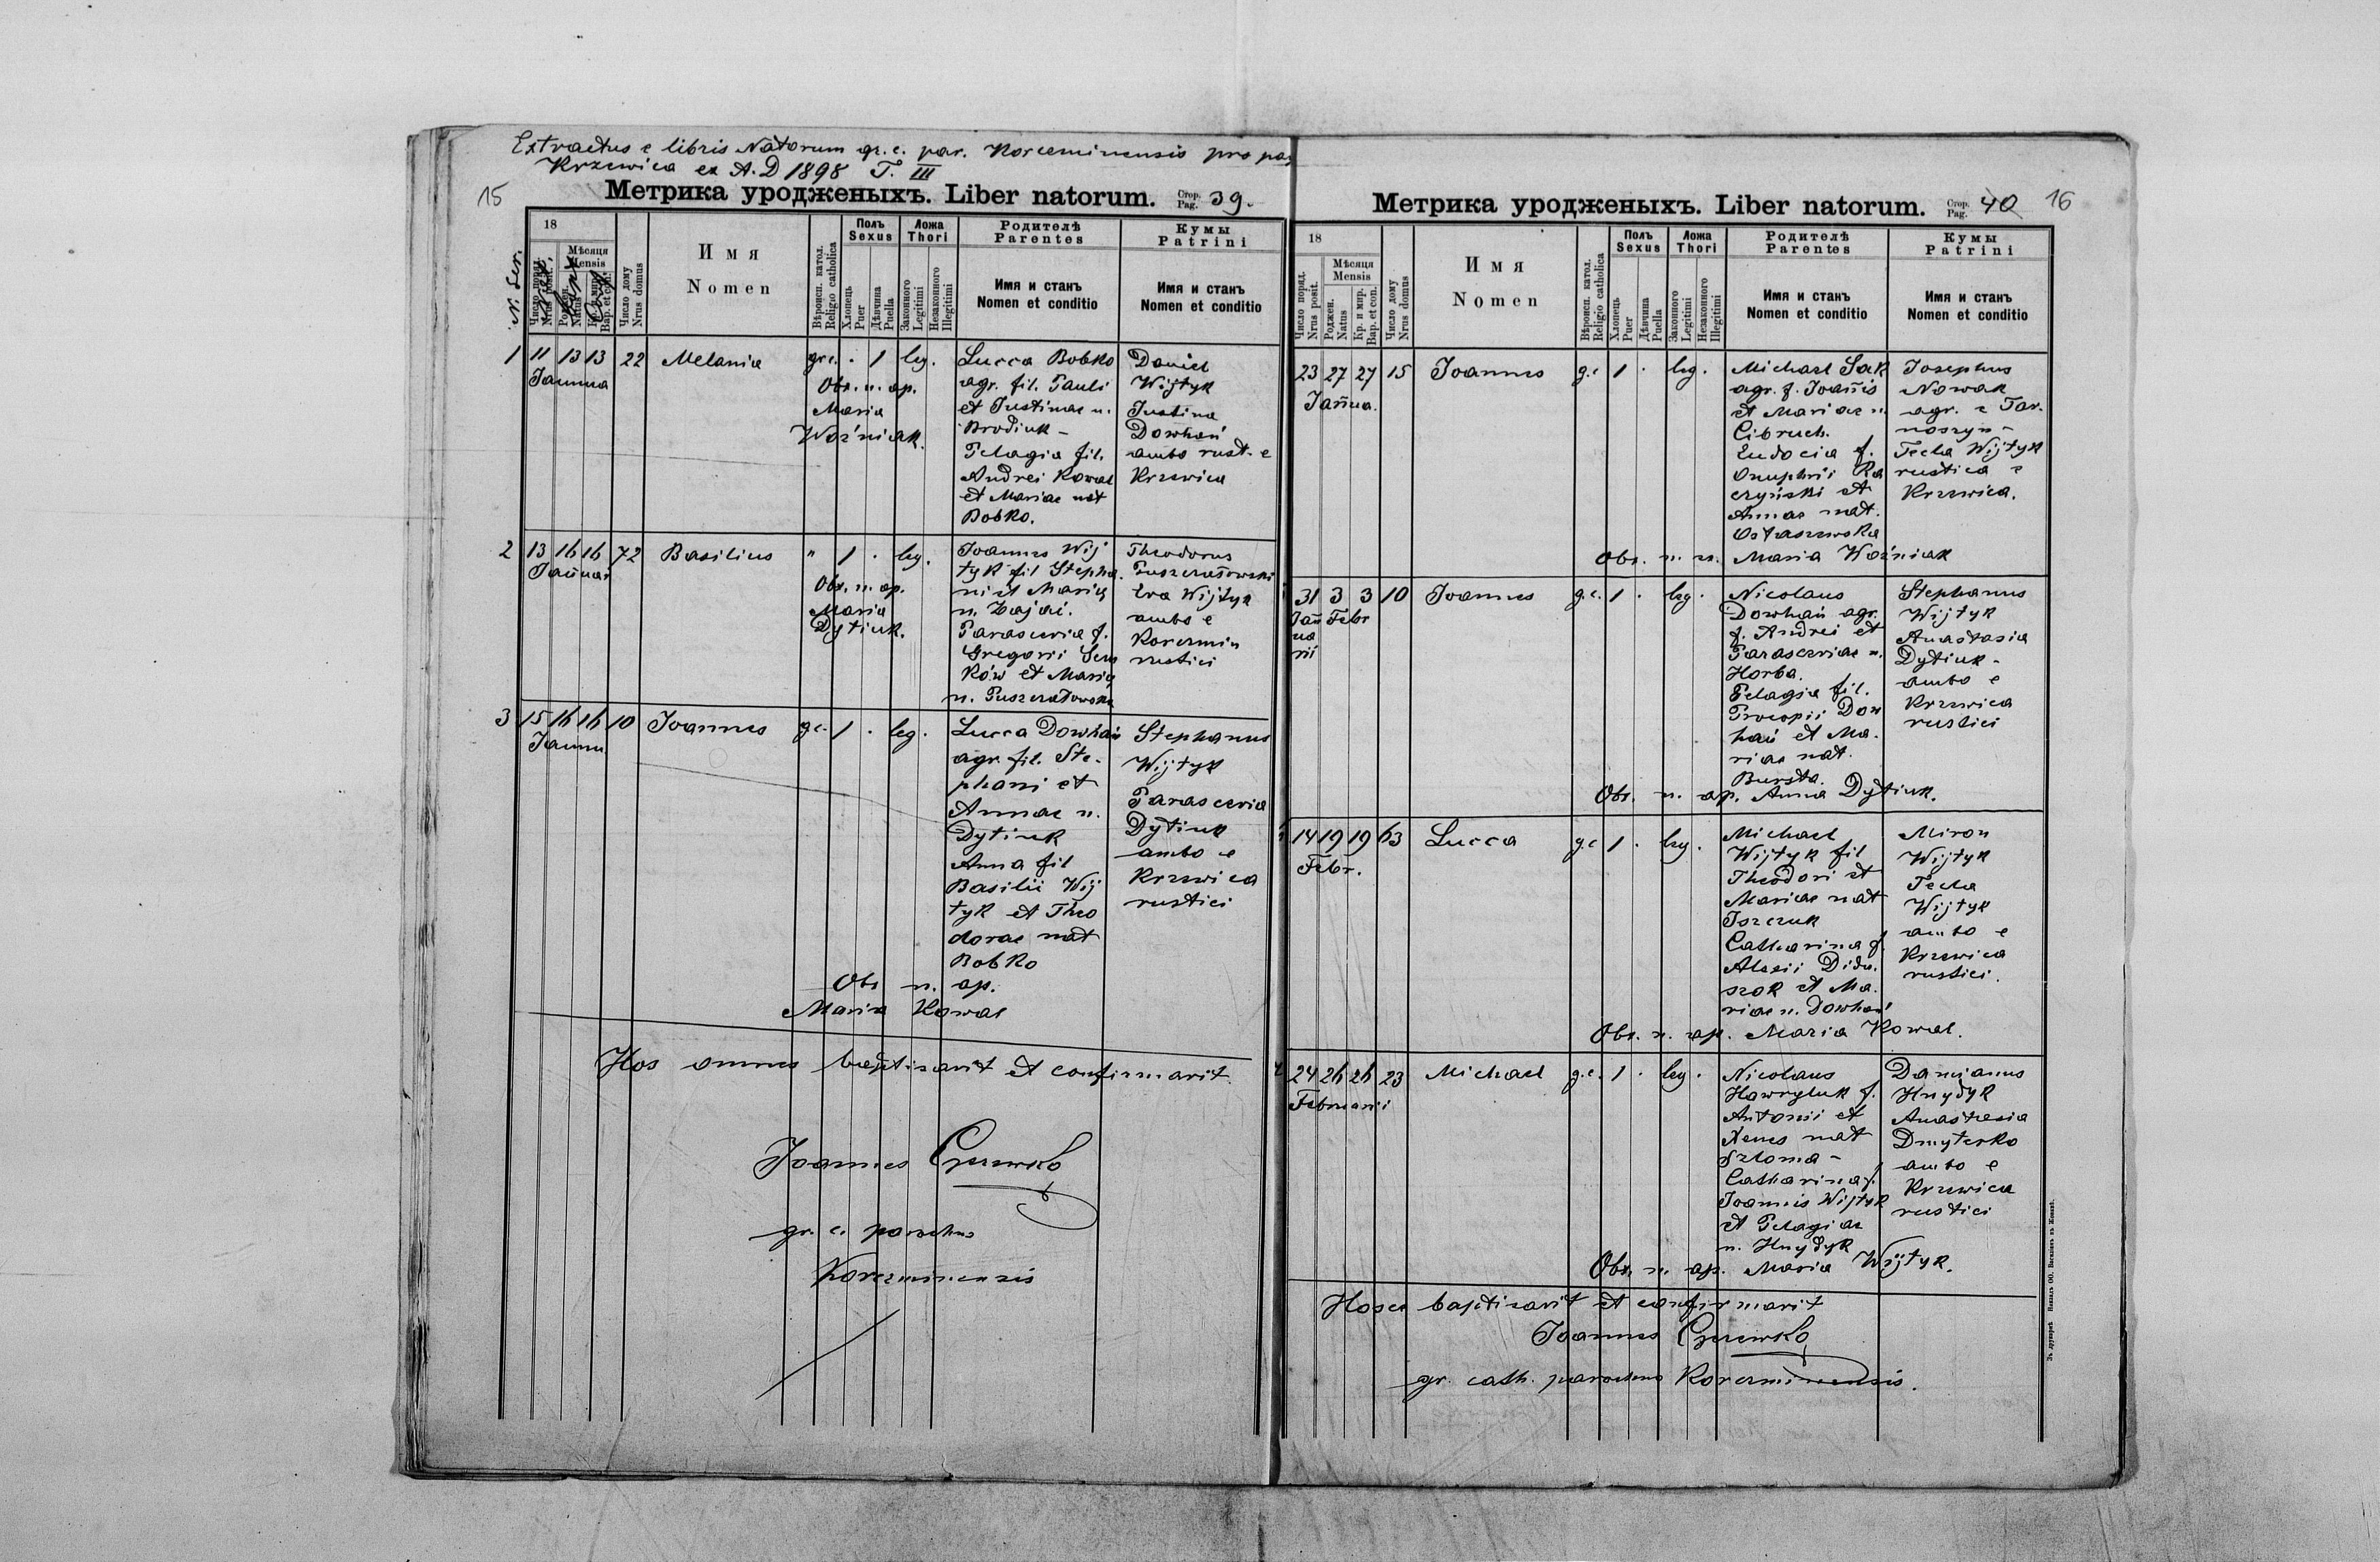 Extractus e libris Natorum gr. c. par. Korceminensis pro par
Krzewica ex A. D 1898 T. III
15
Метрика уродженыхъ. Liber natorum. Стор. Pag. 39.
N. Ser.
18
Число поряд.
Nrus posit.
Мѣсяця
Mensis
Роджен.
Natus
Кр. и мир.
Bap. et con.
Число дому
Nrus domus
Имя
Nomen
Вѣроисп. катол.
Religio catholica
Полъ
Sexus
Хлопець
Puer
Дѣвчина
Puella
Ложа
Thori
Законного
Legitimi
Незаконного
Illegitimi
Родителѣ
Parentes
Имя и станъ
Nomen et conditio
Кумы
Patrini
Имя и станъ
Nomen et conditio
1 11 13 13 22 Melania gr.c. . 1 leg.
Janua
Obs. n. ap.
Maria
Woźniak.
Lucca Bobko
agr. fil. Pauli
et Justinae n.
Brodiuk -
Pelagia fil.
Andrei Kowal
et Mariae nat
Bobko.
Daniel
Wijtyk
Justina
Dowhań
ambo rust. e
Krzewica
2 13 16 16 72 Basilius " 1 . leg.
Januar
Obs. n. ap.
Maria
Dytiuk.
Joannes Wij
tyk fil Stepha.
ni et Maria
n. Zajać.
Parascevia f.
Gregorii Sen
ków et Maria
n. Puszczatowska
Theodorus
Puszczatowski
Eva Wijtyk
ambo e
Korczmin
rustici
3 15 16 16 10 Joannes g.c. 1 . leg.
Janua
Lucca Dowhań
agr. fil. Ste-
phani et
Annae n.
Dytiuk
Anna fil
Basilii Wij
tyk et Theo
dorae nat
Bobko
Stephanus
Wijtyk
Parascevia
Dytiuk
ambo e
Krzewica
rustici
Obs n. ap.
Maria Kowal
Hos omnes baptisavit et confirmavit
Joannes
gr. c. parochus
Korczminensis
Метрика уродженыхъ. Liber natorum. Стор. Pag. 40 16
18
Число поряд.
Nrus posit.
Мѣсяця
Mensis
Роджен.
Natus
Кр. и мир.
Bap. et con.
Число дому
Nrus domus
Имя
Nomen
Вѣроисп. катол.
Religio catholica
Полъ
Sexus
Хлопець
Puer
Дѣвчина
Puella
Ложа
Thori
Законного
Legitimi
Незаконного
Illegitimi
Родителѣ
Parentes
Имя и станъ
Nomen et conditio
Кумы
Patrini
Имя и станъ
Nomen et conditio
23 27 27 15 Joannes g.c 1 . leg.
Janua.
Michael Sak
agr. f. Joanis
et Mariae n.
Cibruch.
Eudocia f.
Onuphrii Ra
czyński et
Annae nat.
Ostaszewska
Josephus
Nowak
agr. e Tar-
noszyn -
Tecla Wijtyk
rustica e
Krzewica.
Obs. n. n. Maria Woźniak
31 3 3 10 Joannes g.c. 1 . leg.
Jan Febr
ua
rii
Nicolaus
Dowhań agr.
f. Andrei et
Parasceviae n.
Horba.
Pelagia fil.
Procopii Dow
hań et Ma-
riae nat.
Burda.
Stephanus
Wijtyk
Anastasia
Dytiuk -
ambo e
Krzewica
rustici
Obs. n. ap. Anna Dytiuk.
14 19 19 63 Lucca g.c 1 . leg.
Febr.
Michael
Wijtyk fil
Theodori et
Mariae nat
Iszczuk
Catharina f.
Alexii Didu.
szok et Ma.
riae n. Dowhań
Miron
Wijtyk
Tecla
Wijtyk
ambo e
Krzewica
rustici.
Obs. n. ap. Maria Kowal.
24 26 26 23 Michael g.c. 1 . leg.
Februarii
Nicolaus
Hawryluk f.
Antonii et
Xenes nat
Szloma -
Catharina f.
Joannis Wijtyk
et Pelagiae
n. Hnydyk
Damianus
Hnydyk
Anastasia
Dmyterko
ambo e
Krzewica
rustici
Obs. n. ap. Maria Wijtyk.
Hosce baptisavit et confirmavit
Joannes
gr. cath. parochus Korczminensis.